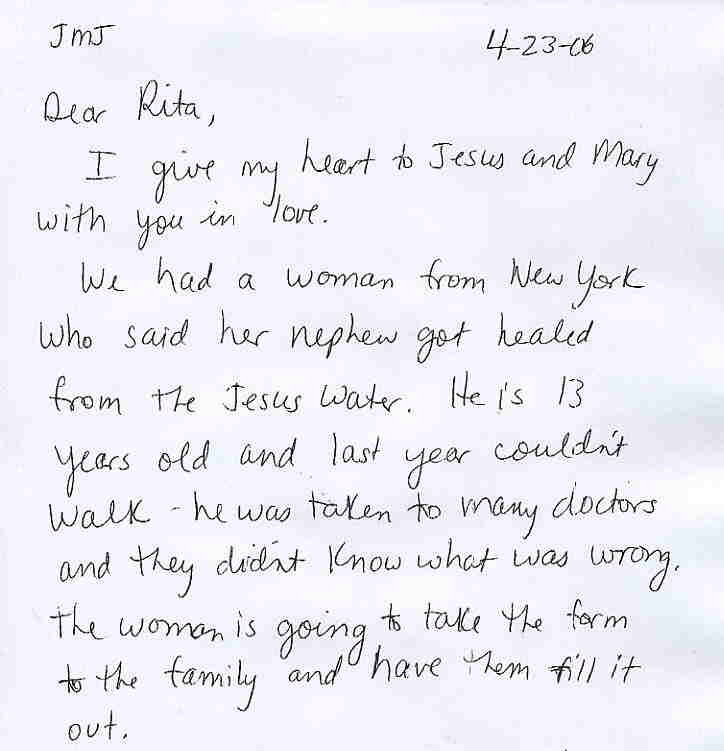 JMJ 4-23-06
Dear Rita,
I give my heart to Jesus and Mary
with you in love.
We had a woman from New York
who said her nephew got healed
from the Jesus Water. He is 13
years old and last year couldn't
walk - he was taken to many doctors
and they didn't know what was wrong.
The woman is going to take the form
to the family and have them fill it
out.